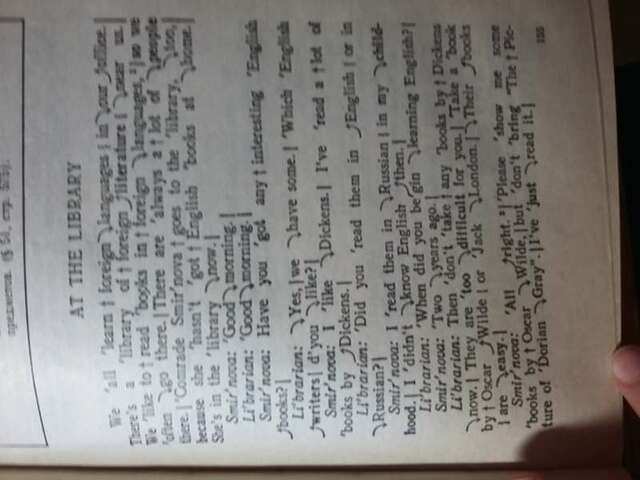 AT THE LIBRARY
We ˈall ˈlearn † foreign ↘languages | in ↘our ↗office. |
There's a ˈlibrary of † foreign ↗literature | ↘near us. |
We ˈlike to † read ˈbooks in † foreign ↘languages, | so we
ˈoften ↘go there. | There are ˈalways a † lot of ↘people
there. | ˈComrade Smirˈnova † goes to the ˈlibrary, ↘too,
because she ˈhasn't got † English ˈbooks at ↘home. |
She's in the ˈlibrary ↘now. |
Smirˈnova: ˈGood ↘morning. |
Liˈbrarian: ˈGood ↘morning. |
Smirˈnova: Have you ˈgot any † interesting ˈEnglish
↗books? |
Liˈbrarian: ↘Yes, | we ↘have some. | ˈWhich ˈEnglish
↗writers | d'you ↘like? |
Smirˈnova: I ˈlike ↘Dickens. | I've ˈread a † lot of
ˈbooks by ↗Dickens. |
Liˈbrarian: ˈDid you ˈread them in ↗English | or in
↘Russian? |
Smirˈnova: I ˈread them in ↘Russian | in my ↘child-
hood. | I ˈdidn't ↘know English ↗then. |
Liˈbrarian: ˈWhen did you beˈgin ↘learning English? |
Smirˈnova: ˈTwo ↘years ago. |
Liˈbrarian: Then ˈdon't ˈtake † any ˈbooks by † Dickens
↘now. | They are ˈtoo ↘difficult for you. | ˈTake a ˈbook
by † Oscar ↗Wilde | or ˈJack ↘London. | ↘Their ↗books
| are ↘easy. |
Smirˈnova: ˈAll ↗right. | ˈPlease ˈshow me some
ˈbooks by † Oscar ↘Wilde, | but ˈdon't ˈbring "The † Pic-
ture of ˈDorian ↘Gray". | I've ˈjust ↘read it. |